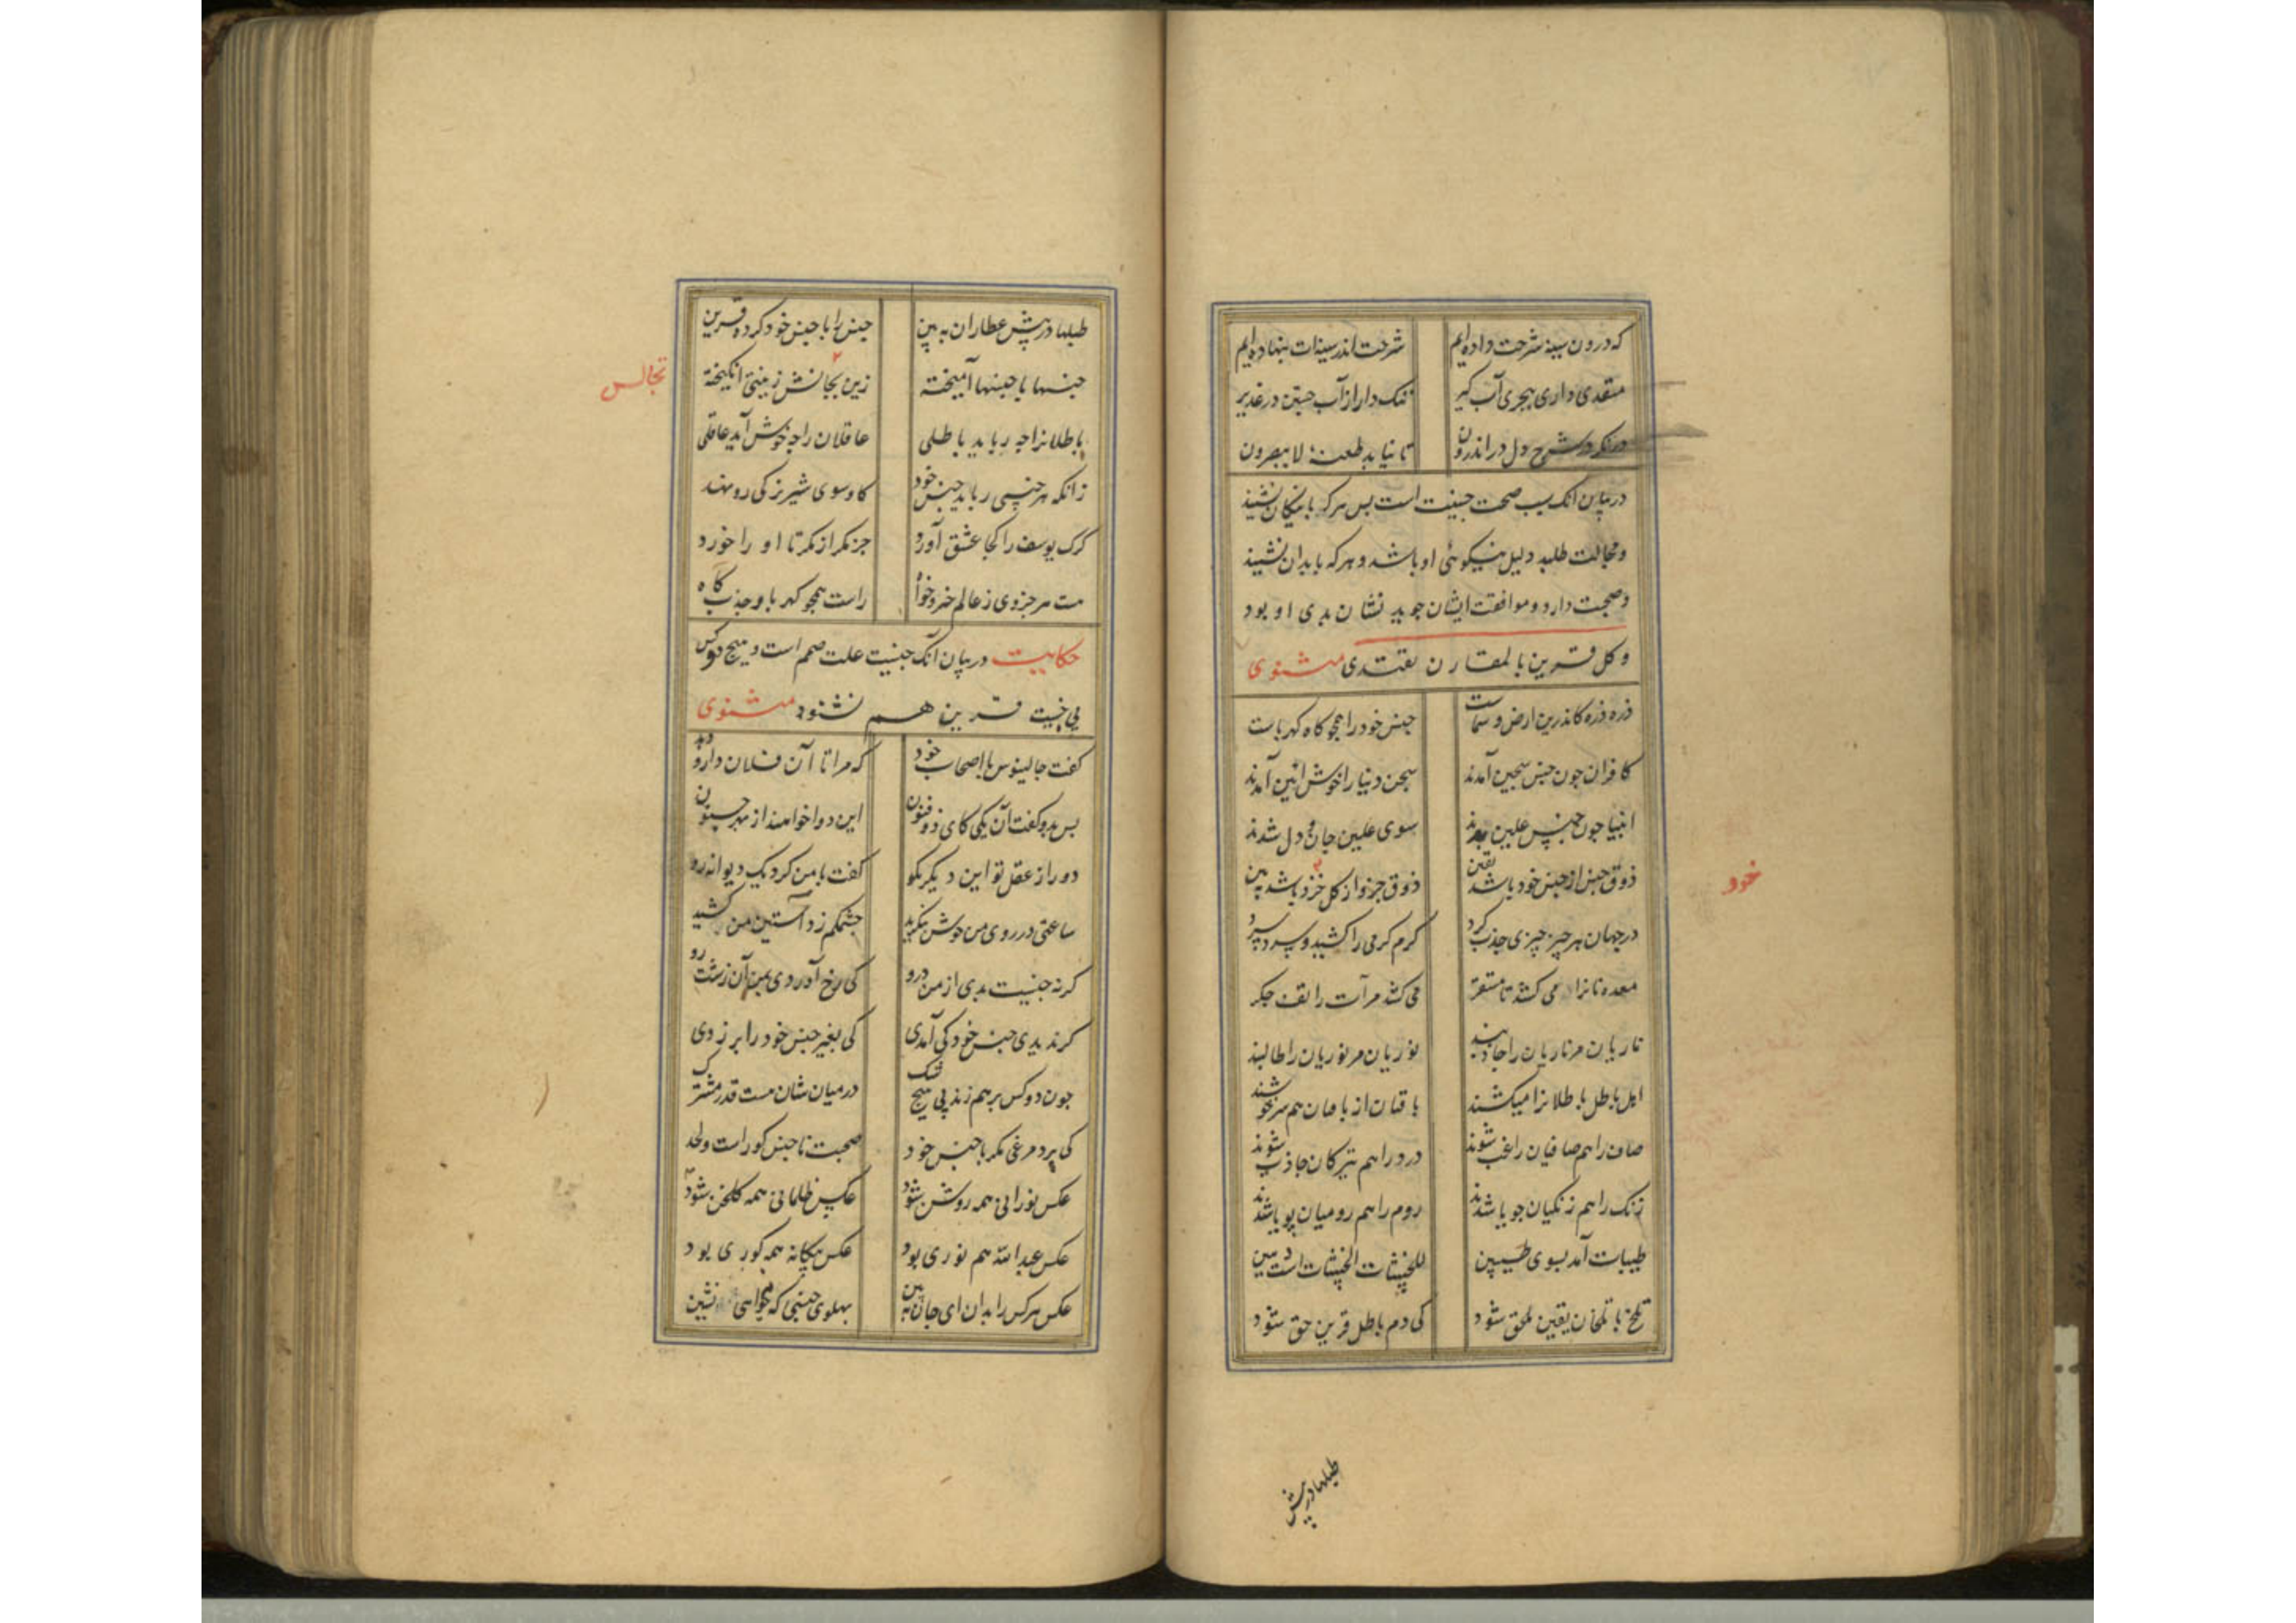 که درون سینه شرحت داده‌ایم شرحت اندر سینه‌ات بنهاده‌ایم
منفدی داری ببحری آب گیر ننک دار از آب جستن در غدیر
درنکر در شرح دل در اندرون تا نیاید طعنهٔ لا یبصرون
در بیان آنک سبب صحبت جنسیت است بس هر که با نیکان نشیند
و مجالست طلبد دلیل نیکوئی او باشد و هر که با بدان نشیند
و صحبت دارد و موافقت ایشان جوید نشان بدی او بود
و کل قرین بالمقارن یقتدی مثنوی
ذره ذره کاندرین ارض و سماست جنس خود را همجو کاه کهرباست
کافران جون جنس سجین آمدند سجن دنیا را خوش آئین آمدند
انبیا جون جنس علیین بدند سوی علیین جان و دل شدند
ذوق جنس از جنس خود باشد یقین ذوق جزو از کل خرد باشد ببین
خود
در جهان هر چیز چیزی جذب کرد کرم کرمی را کشید و سرد سرد
معده نانرا می کشد تا مستقر می کشد مر آب را تف جکر
ناریان مر ناریان را جاذبند نوریان مر نوریان را طالبند
اهل باطل باطلانرا میکشند باقیان از باقیان هم سرخوشند
صاف را هم صافیان راغب شوند درد را هم تیرکان جاذب شوند
زنک را هم زنکیان جویا شدند روم را هم رومیان پویا شدند
طیبات آمد بسوی طیبین للخبیثات الخبیثات است هین
تلخ با تلخان یقین ملحق شود کی دم باطل قرین حق شود
طبلها در پیش
طبلها در پیش عطاران ببین جنس را با جنس خود کرده قرین
جنسها با جنسها آمیخته زین تجانس زینتی انکیخته
تجالس
باطلانرا جه رباید باطلی عاقلان را جه خوش آید عاقلی
زانکه هر جنسی رباید جنس خود کاو سوی شیر نر کی رو نهد
کرک یوسف را کجا عشق آورد جز مکر از مکر تا او را خورد
هست هر جزوی ز عالم جزو خواه راست همجو کهربا و جذب کاه
حکایت در بیان آنک جنسیت علت ضم است و هیج دو کس
بی جنسیت قرین هم نشنود مثنوی
کفت جالینوس با اصحاب خود که مرا تا آن فلان دارو دهد
بس بدو کفت آن یکی کای ذو فنون این دوا خواهند از بهر جنون
دور از عقل تو این دیکر مکو کفت با من کرد یک دیوانه رو
ساعتی در روی من خوش بنکرید جشمکم زد آستین من کشید
کر نه جنسیت بدی از من درو کی رخ آوردی بمن آن زشت رو
کر ندیدی جنس خود کی آمدی کی بغیر جنس خود را بر زدی
جون دو کس بر هم زند بی هیج شک در میان شان هست قدر مشترک
کی پرد مرغی مکر با جنس خود صحبت ناجنس کور است و لحد
عکس نورانی همه روشن شود عکس ظلمانی همه کلخن شود
عکس عبدالله هم نوری بود عکس بیکانه همه کوری بود
عکس هر کس را بدان ای جان ببین بهلوی جنسی که میخواهی نشین